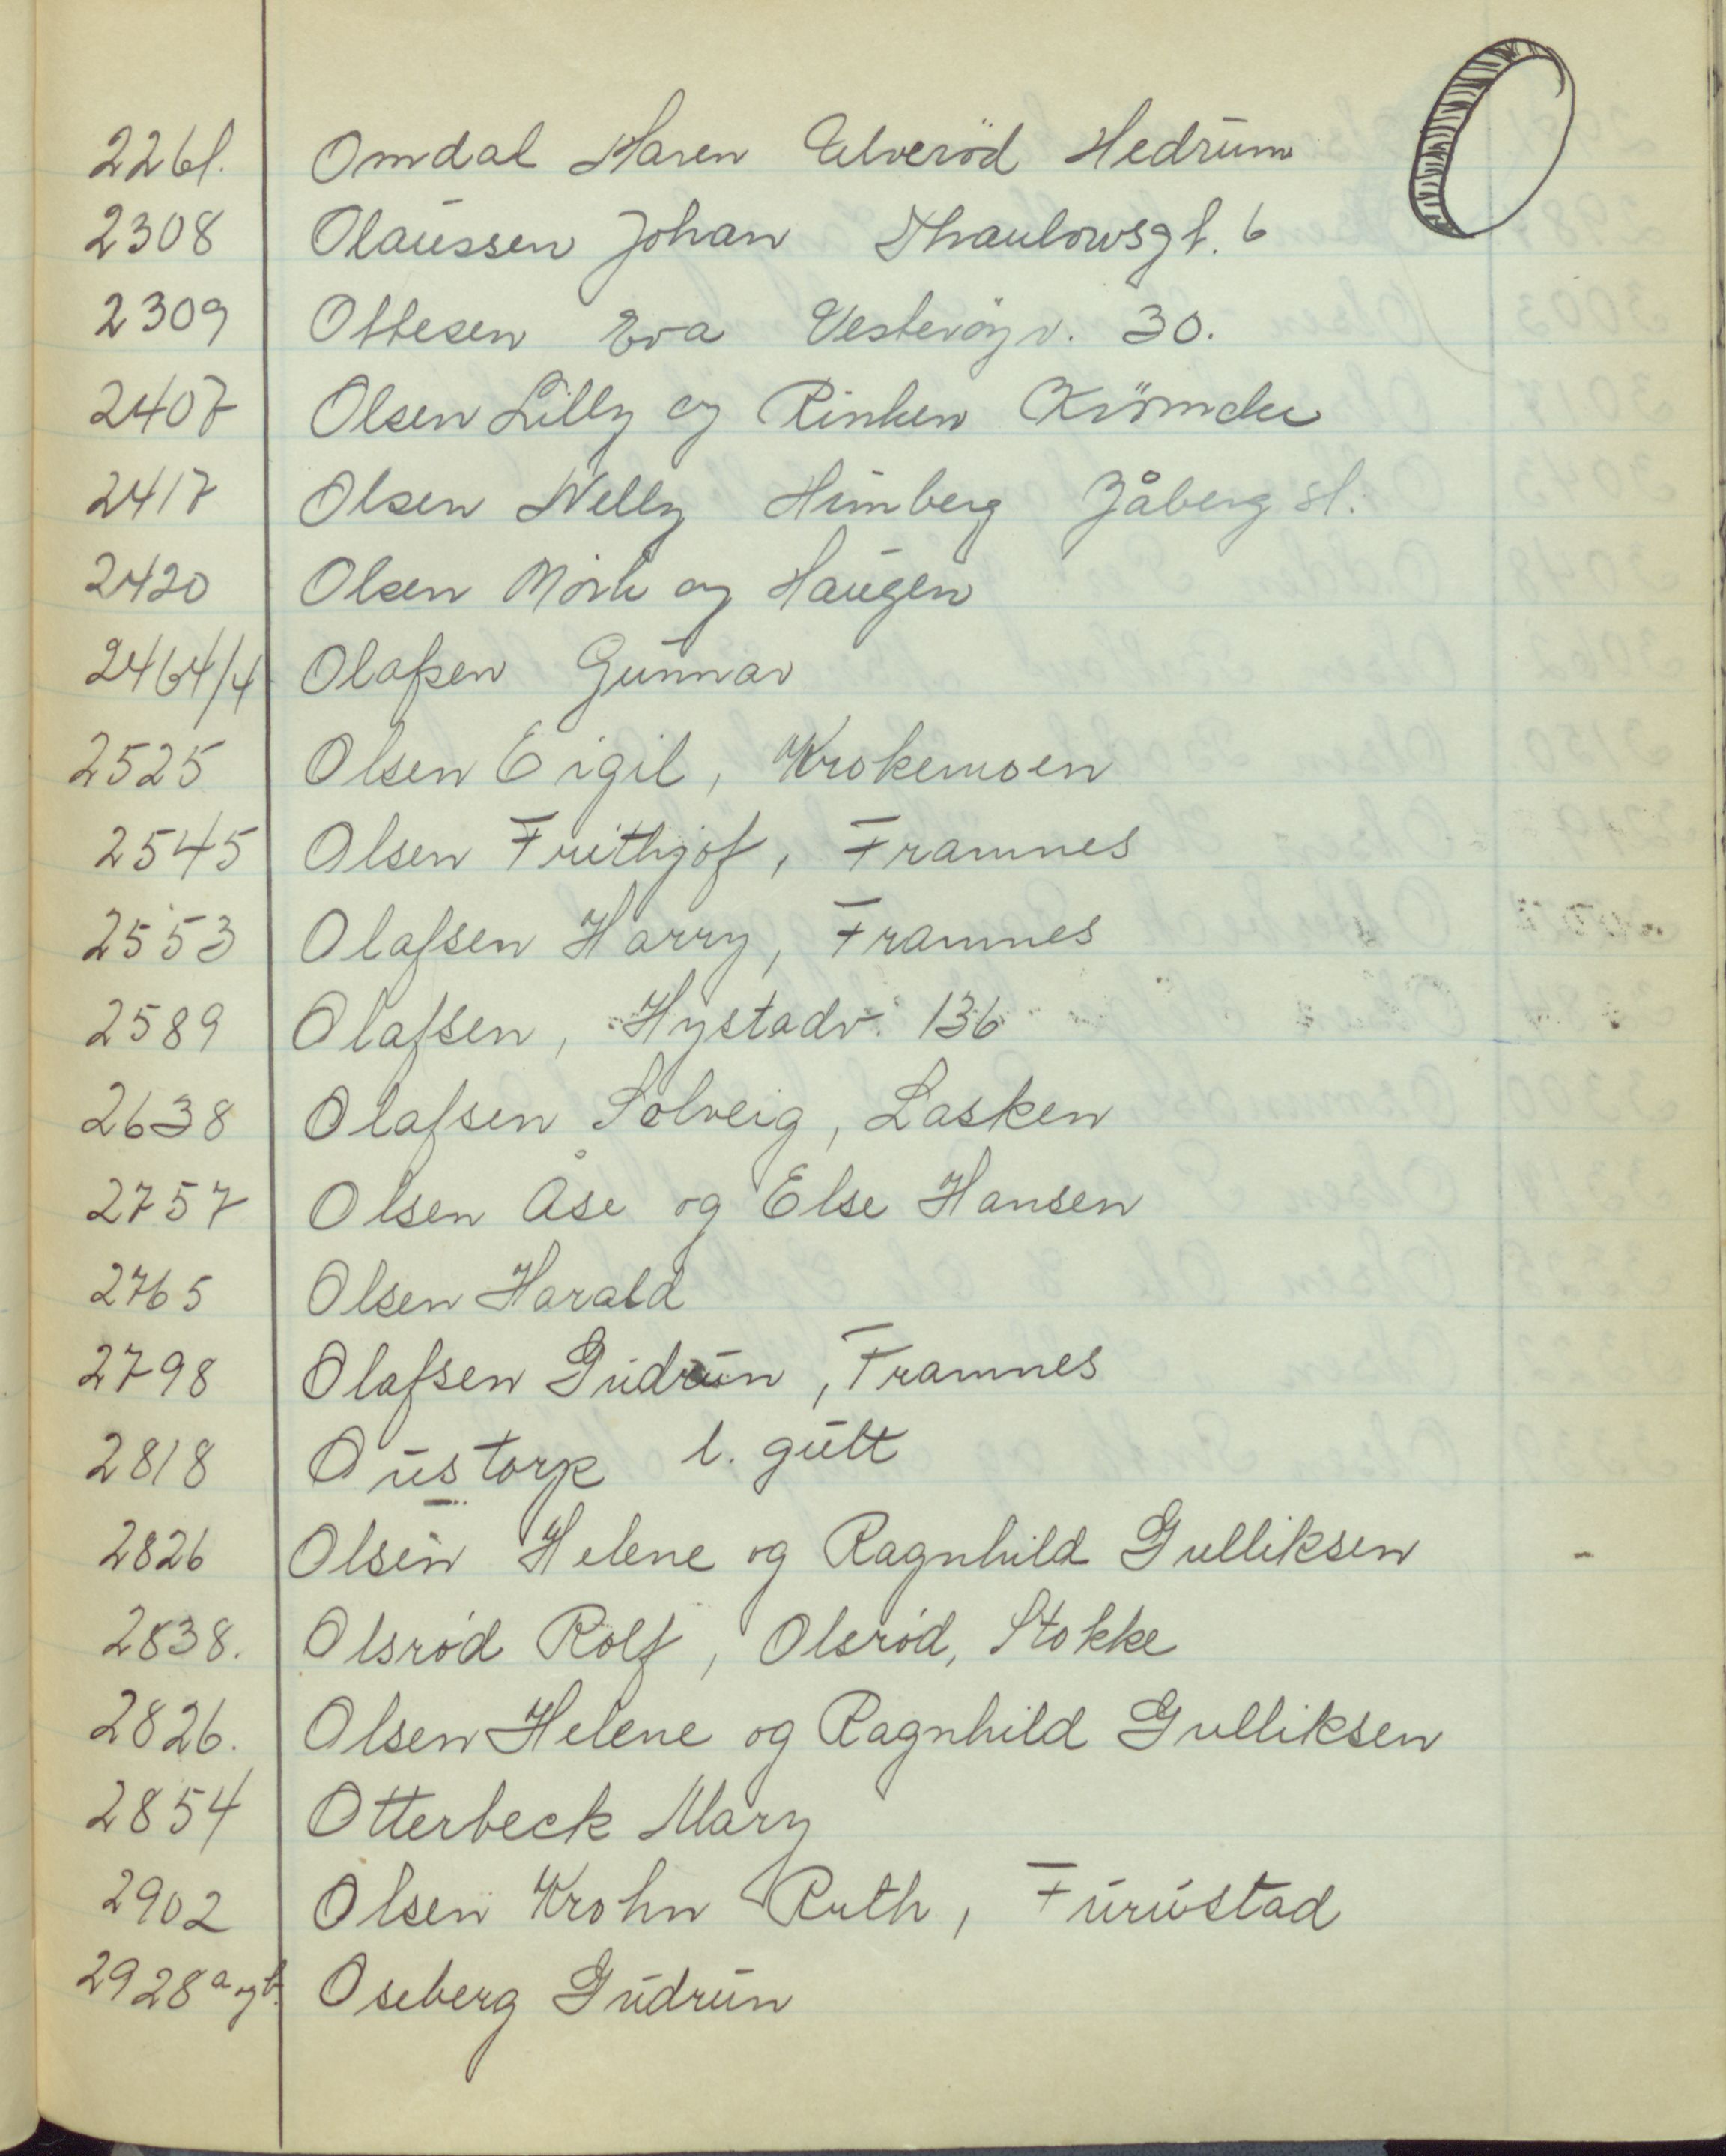 O
2261. Omdal Maren Elverød Hedrum
2308 Olaussen Johan Thaulowsgt. 6
2309 Ottesen Eva Vesterøyv. 30.
2407 Olsen Lilly og Rinken
2417 Olsen Nelly Himberg Jåberg st.
2420 Olsen Mörk og Haugen
2464/4 Olafsen Gunnar
2525 Olsen Eigil, Krokemoen
2545 Olsen Frithjof, Framnes
2553 Olafsen Harry, Framnes
2589 Olafsen, Hystadv. 136
2638 Olafsen Solveig, Lasken
2757 Olsen Åse og Else Hansen
2765 Olsen Harald
2798 Olafsen Gudrun, Framnes
2818 Oustorp l. gutt
2826 Olsen Helene og Ragnhild Gulliksen
2838. Olsrød Rolf, Olsrød, Stokke
2826. Olsen Helene og Ragnhild Gulliksen
2854 Otterbeck Mary
2902 Olsen Krohn Ruth, Furustad
2928 a og b. Oseberg Gudrun